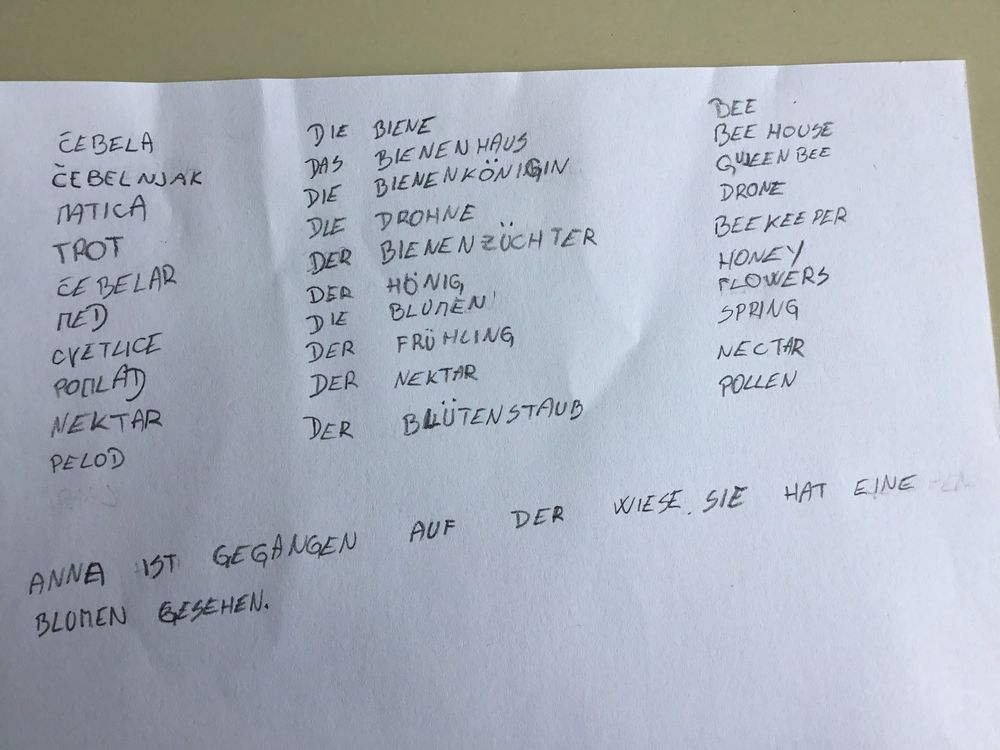 ČEBELA DIE BIENE BEE
ČEBELNJAK DAS BIENENHAUS BEE HOUSE
MATICA DIE BIENENKÖNIGIN QUEEN BEE
TROT DIE DROHNE DRONE
ČEBELAR DER BIENENZÜCHTER BEEKEEPER
MED DER HÖNIG HONEY
CVETLICE DIE BLUMEN FLOWERS
POMLAD DER FRÜHLING SPRING
NEKTAR DER NEKTAR NECTAR
PELOD DER BLÜTENSTAUB POLLEN
ANNA IST GEGANGEN AUF DER WIESE. SIE HAT EINE
BLUMEN GESEHEN.